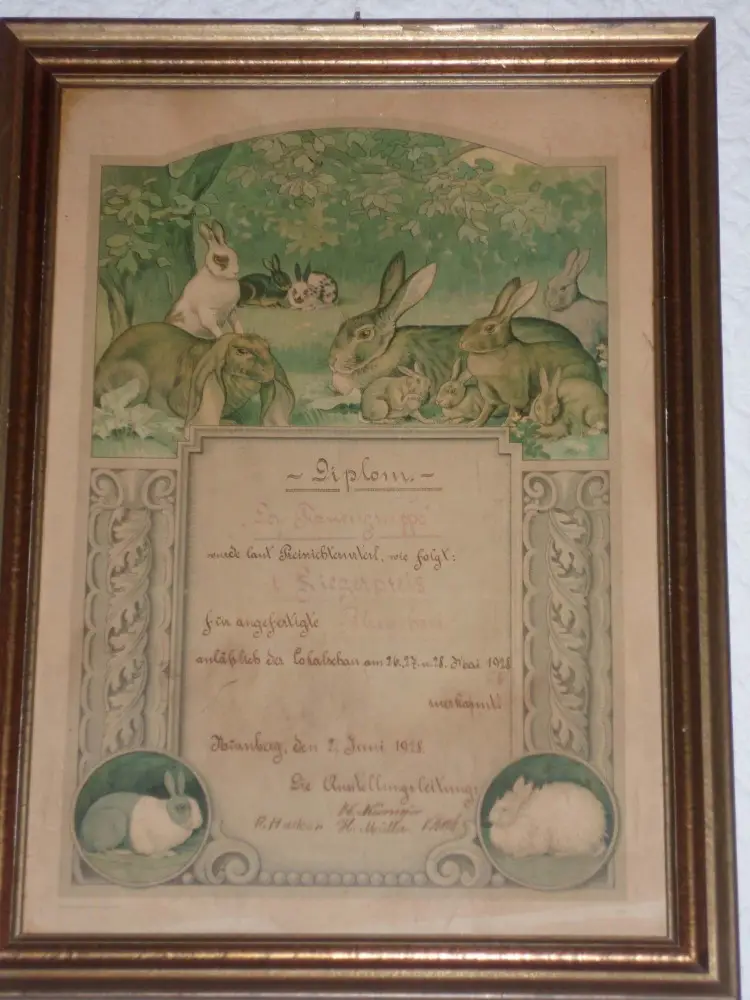 ~ Diplom. ~
„Der Frauengruppe"
wurde laut Preisrichterurteil, wie folgt:
1 Siegerpreis
für angefertigte
anläßlich der Lokalschau am 26., 27. u. 28. Mai 1928
anerkannt.
den 2. Juni 1928
Die Ausstellungsleitung:
H. Müller